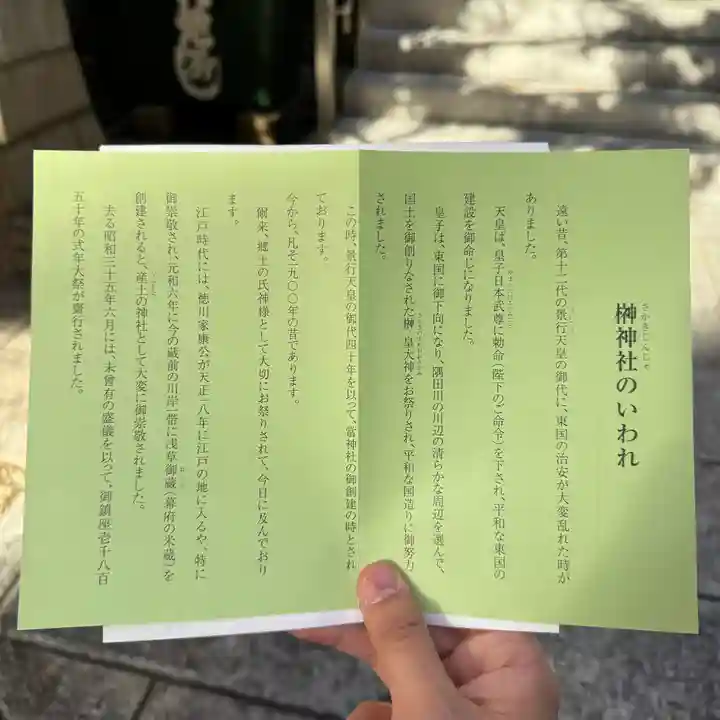 榊神社のいわれ
さかきじんじゃ
遠い昔、第十二代の景行天皇の御代に、東国の治安が大変乱れた時が
ありました。
天皇は、皇子日本武尊に勅命（陛下のご命令）を下され、平和な東国の
建設を御命じになりました。
皇子は、東国に御下向になり、隅田川の川辺の清らかな周辺を選んで、
国土を御創りなされた榊皇大神をお祭りされ、平和な国造りに御努力
されました。
この時、景行天皇の御代四十年を以って、當神社の御創建の時とされ
ております。
今から、凡そ一九〇〇年の昔であります。
爾来、郷土の氏神様として大切にお祭りされて、今日に及んでおり
ます。
江戸時代には、徳川家康公が天正一八年に江戸の地に入るや、特に
御崇敬され、元和六年に今の蔵前の川岸一帯に浅草御蔵（幕府の米蔵）を
創建されると、産土の神社として大変に御崇敬されました。
去る昭和三十五年六月には、未曾有の盛儀を以って、御鎮座壱千八百
五十年の式年大祭が齋行されました。